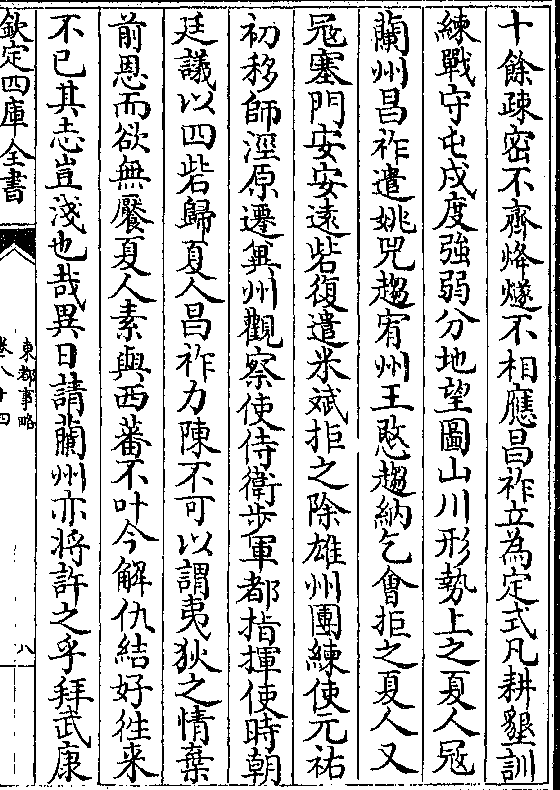 十餘疎密不齊烽燧不相應昌祚立為定式凡耕墾訓
練戰守屯戍度強弱分地望圖山川形勢上之夏人冦
蘭州昌祚遣姚兕趨宥州王愍趨納乞會拒之夏人又
冦塞門安安逺砦復遣米斌拒之除雄州團練使元祐
初移師涇原遷冀州觀察使侍衞步軍都指揮使時朝
廷議以四砦歸夏人昌祚力陳不可以謂夷狄之情棄
前恩而欲無饜夏人素與西蕃不叶今解仇結好徃来
不已其志豈淺也哉異日請蘭州亦將許之乎拜武康
欽定四庫全書
東都事略
卷八十四
八